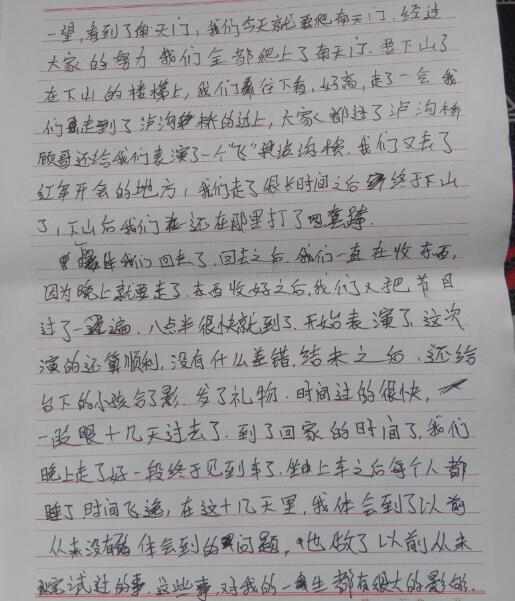 一望,看到了南天门,我们今天就要爬南天门.经过
大家的努力 我们全都爬上了南天门.要下山了
在下山的楼梯上,我们往下看,好高,走了一会 我
们走到了泸沟桥的边上,大家都过了泸沟桥
顾哥还给我们表演了一个"飞"泸沟桥.我们又去了
红军开会的地方,我们走了很长时间之后 终于下山
了,下山后我们还在那里打了回
我们回去了.回去之后.我们一直在收东西,
因为晚上就要走了.东西收好之后,我们又把节目
过了一遍.八点半很快就到了.开始表演了.这次
演的还算顺利,没有什么差错.结束之后.还给
台下的小孩合了影.发了礼物.时间过的很快,
一眨眼十几天过去了.到了回家的时间了.我们
晚上走了好一段终于见到车了.上车之后每个人都
睡了 时间飞逝,在这十几天里,我体会到了以前
从来没有体会到的问题,也做了以前从未
试过的事.这些事,对我的一生都有很大的影响.